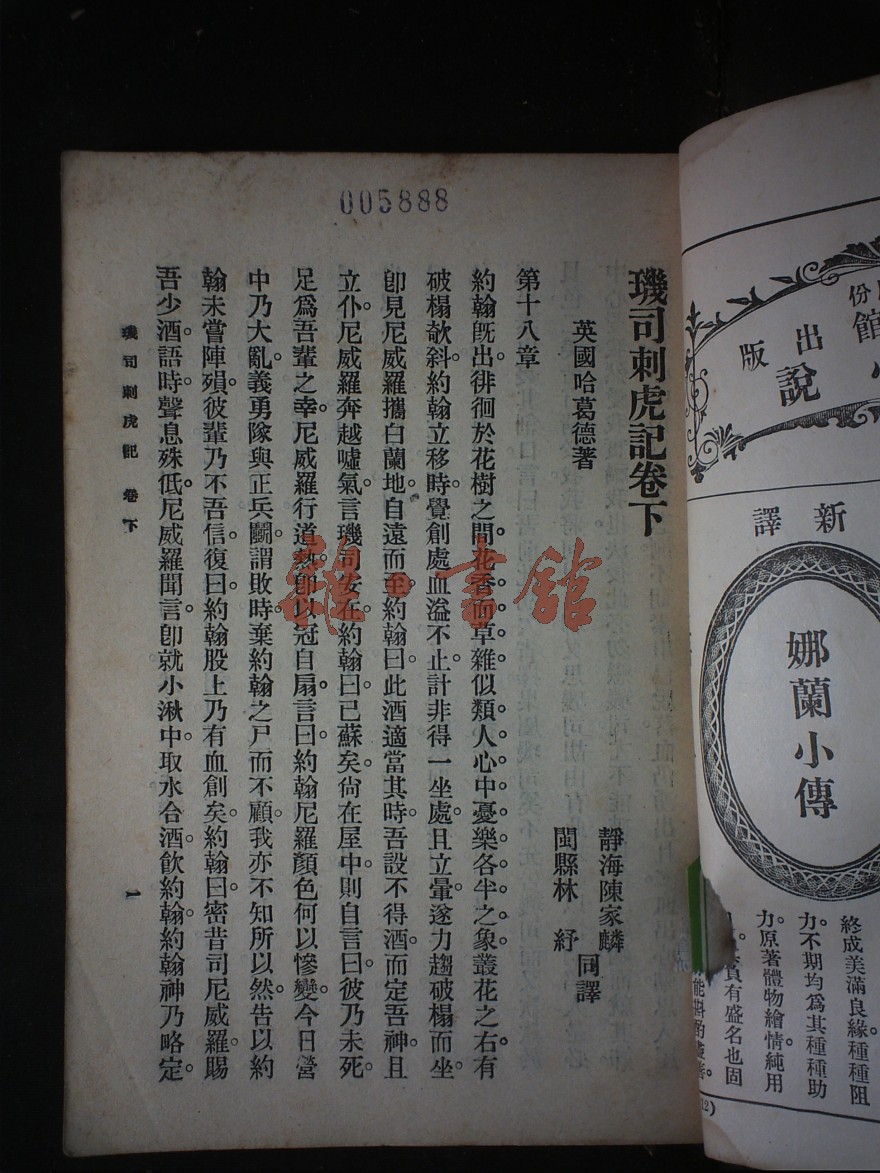 005888
璣司刺虎記卷下
英國哈葛德著
靜海陳家麟
閩縣林 紓
同譯
第十八章
約翰旣出徘徊於花樹之間。花香而草雜似類人心中憂樂各半之象叢花之右有
破榻欹斜約翰立移時覺創處血溢不止計非得一坐處且立暈遂力趨破榻而坐。
卽見尼威羅攜白蘭地自遠而至約翰曰此酒適當其時吾設不得酒而定吾神且
立仆尼威羅奔越噓氣言璣司安在約翰曰已蘇矣尙在屋中則自言曰彼乃未死。
足爲吾輩之幸尼威羅行道熱卽以冠自扇言曰約翰尼羅顏色何以慘變今日營
中乃大亂義勇隊與正兵鬭謂敗時棄約翰之尸而不顧我亦不知所以然告以約
翰未嘗陣殞彼輩乃不吾信復曰約翰股上乃有血創矣約翰曰密昔司尼威羅賜
吾少酒語時聲息殊低尼威羅聞言卽就小湫中取水合酒飮約翰約翰神乃略定
璣司刺虎記 卷下
一
雜·書館
份
館
出版
說
新譯
娜蘭小傳
終成美滿良緣種種阻
力不期均爲其種種助
力原著體物繪情純用
負有盛名也固
能斟酌